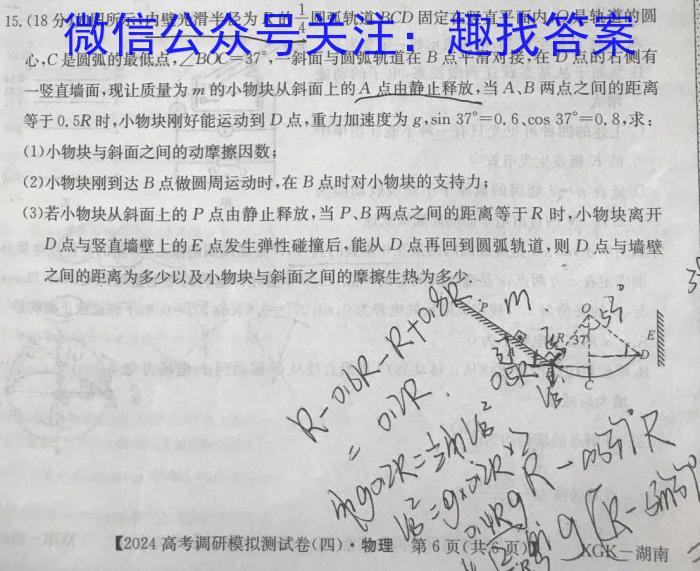 15.(18分)如图所示,内壁光滑半径为R的1/4圆弧轨道BCD固定在竖直平面内,O是轨道的圆
微信公众号关注：趣找答案
心,C是圆弧的最低点,∠BOC=37°,一斜面与圆弧轨道在B点平滑对接,在D点的右侧有
一竖直墙面,现让质量为m的小物块从斜面上的A点由静止释放,当A、B两点之间的距离
等于0.5R时,小物块刚好能运动到D点,重力加速度为g,sin 37°=0.6、cos 37°=0.8,求:
(1)小物块与斜面之间的动摩擦因数;
(2)小物块刚到达B点做圆周运动时,在B点时对小物块的支持力;
(3)若小物块从斜面上的P点由静止释放,当P、B两点之间的距离等于R时,小物块离开
D点与竖直墙壁上的E点发生弹性碰撞后,能从D点再回到圆弧轨道,则D点与墙壁
之间的距离为多少以及小物块与斜面之间的摩擦生热为多少。
P
m
R
37°
E
D
C
0.5R
R-0.6R-R+0.8R
= 0.2R.
mg0.2R=½mVB²
VB²=g×0.2R×2
0.4Rg
【2024高考调研模拟测试卷(四)·物理 第6页(共6页)】 XGK-湖南